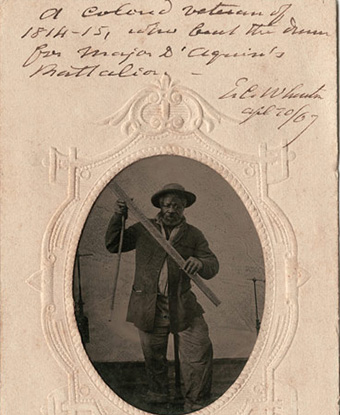 A colored veteran of
1814-15, who beat the drum
for Major D'Aquin's
Battalion –
E.C. Wharton
Apl 20/67